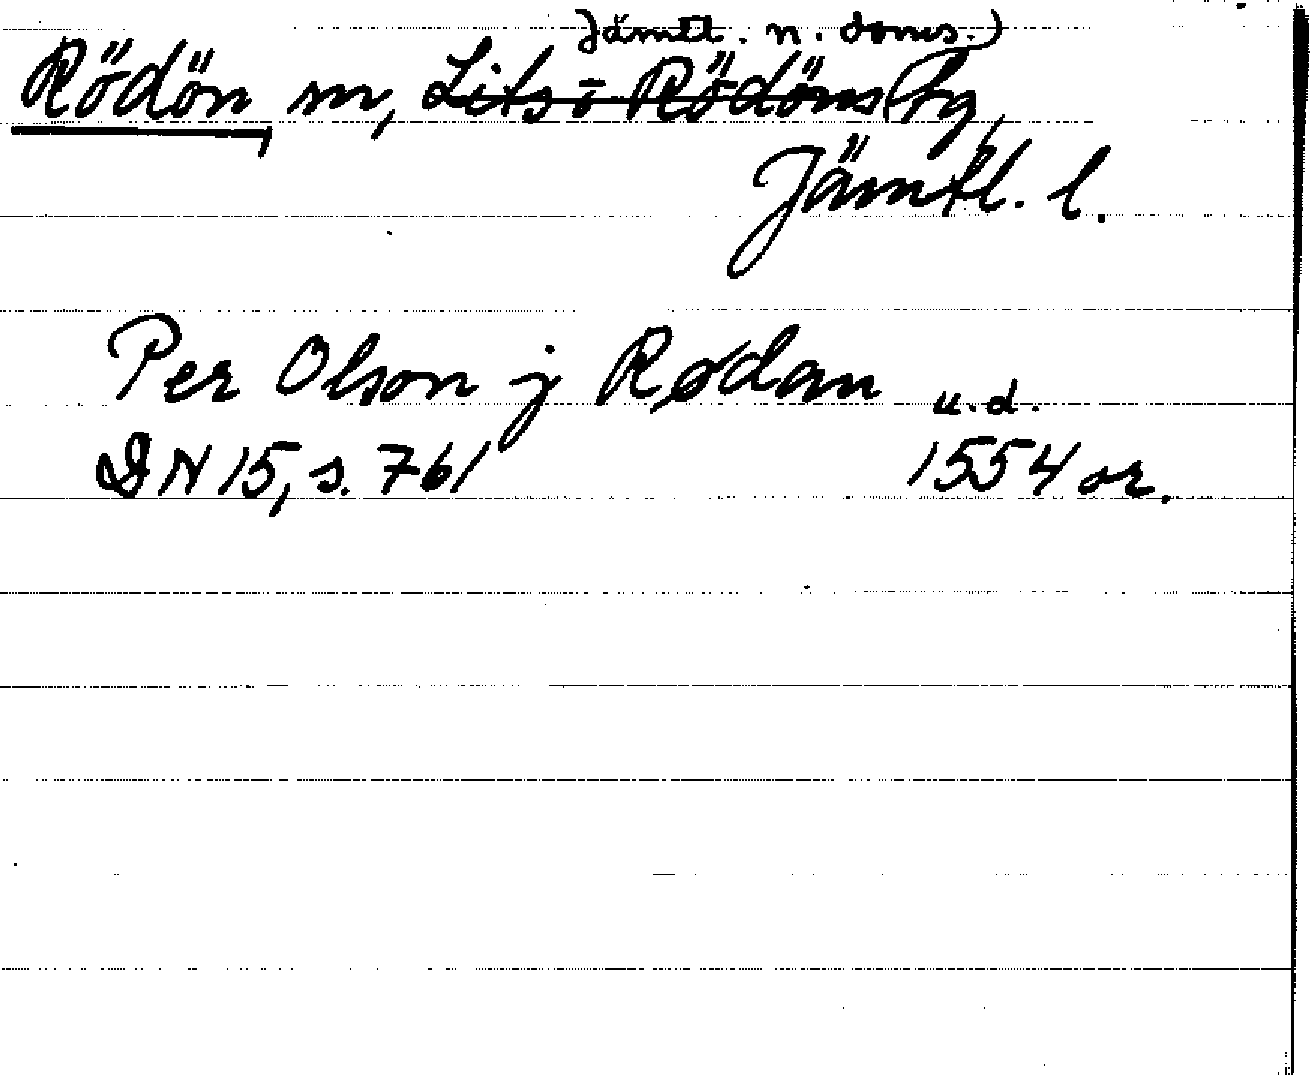 Jämtl. n. doms.)
Rödön sn, Lits o Rödöns tg,
Jämtl. l.
Per Olson j Rødan
u.d.
DN 15, s. 761 1554 or.